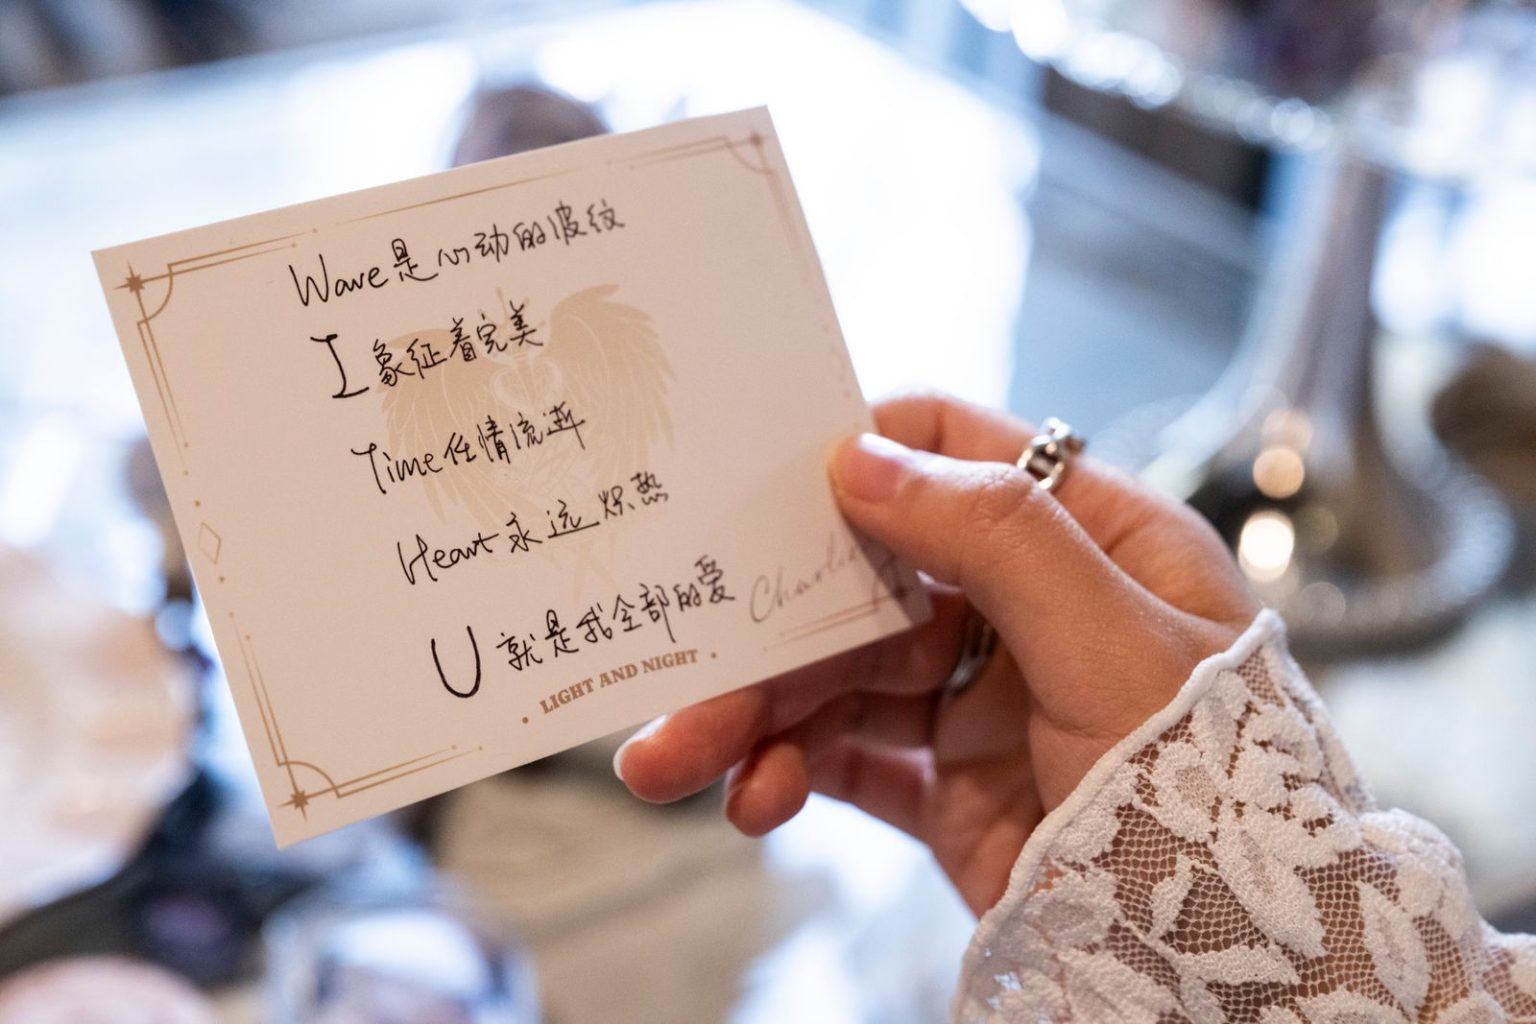 Wave是心动的波纹
I象征着完美
Time任情流逝
Heart永远炽热
U就是我全部的爱
Charlie
LIGHT AND NIGHT